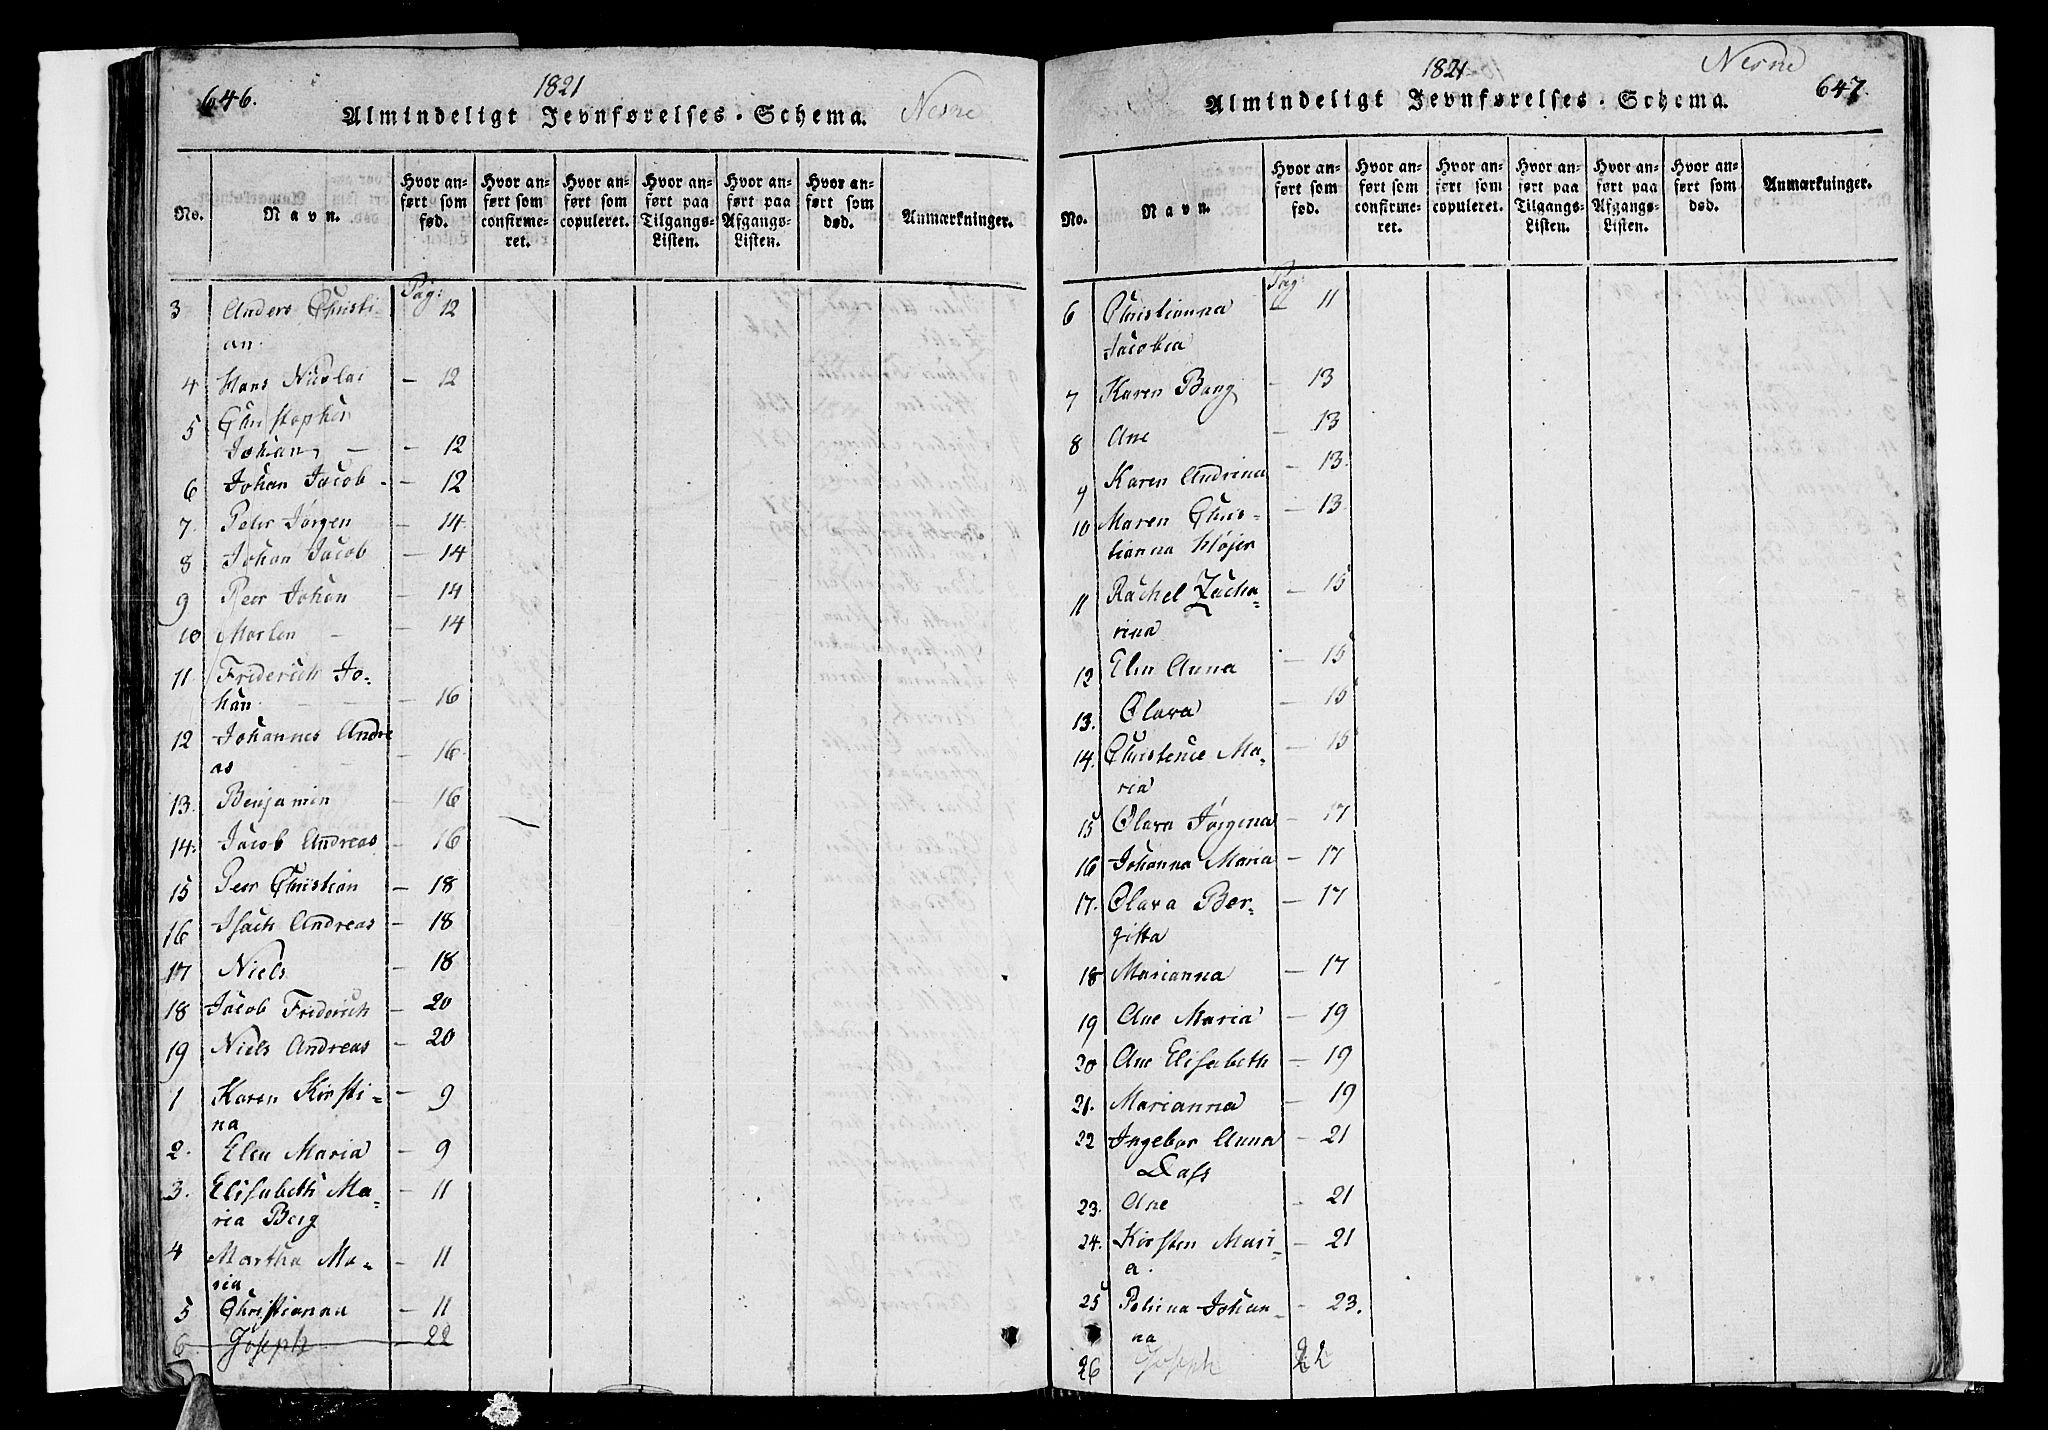 646.
1821
Almindeligt Jevnførelses-Schema.
Nesne
No.
Navn.
Hvor anført som fød.
Hvor anført som confirmeret.
Hvor anført som copuleret.
Hvor anført paa Tilgangs-Listen.
Hvor anført paa Afgangs-Listen.
Hvor anført som død.
Anmærkninger.
Pag:
3 Anders Christi- 12
an.
4 Hans Nicolai — 12
5 Christopher
Johan, — — 12
6 Johan Jacob - - 12
7. Peter Jørgen — 14.
8 Johan Jacob — 14
9 Peer Johan — 14
10 Morten — — 14
11 Friderich Jo-
han. — 16
12 Johannes Andre
as — 16.
13. Benjamin — 16
14. Jacob Andreas - 16
15 Peer Christian — 18
16 Isach Andreas — 18
17 Niels — 18
18 Jacob Friderich — 20
19 Niels Andreas — 20
1 Karen Kirsti- — 9
na
2. Elen Maria — 9
3. Elisabeth Ma- — 11
ria Berg
4 Martha Ma- — 11
ria
5 Christianna — 11
6 Joseph — 22
1821
Nesne
647.
Almindeligt Jevnførelses-Schema.
No.
Navn.
Hvor anført som fød.
Hvor anført som confirmeret.
Hvor anført som copuleret.
Hvor anført paa Tilgangs-Listen.
Hvor anført paa Afgangs-Listen.
Hvor anført som død.
Anmærkninger.
Pag:
6 Christianna — 11
Jacobia
7 Karen Bang — 13
8 Ane — 13
9 Karen Andrina — 13.
10 Maren Chris- — 13.
tianna Højer
11 Rachel Zacha- — 15
rina
12 Elen Anna — 15
13. Olava — 15
14. Christence Ma- — 15
ria
15 Olava Jørgina — 17
16 Johanna Maria — 17
17. Olava Ber- — 17
gitta
18 Marianna — 17
19 Ane Maria — 19
20 Ane Elisabeth — 19
21. Marianna — 19
22 Ingebor Anna — 21
Dass
23. Ane — 21
24. Kirsten Mari- — 21
a.
25 Petrina Johan- — 23.
na
26 Joseph 22